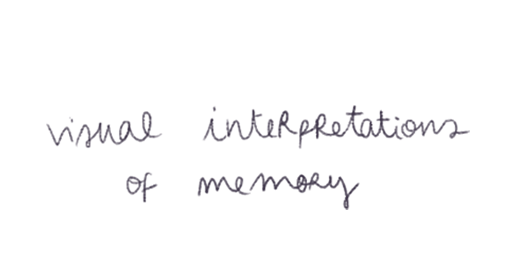 visual interpretations
of memory